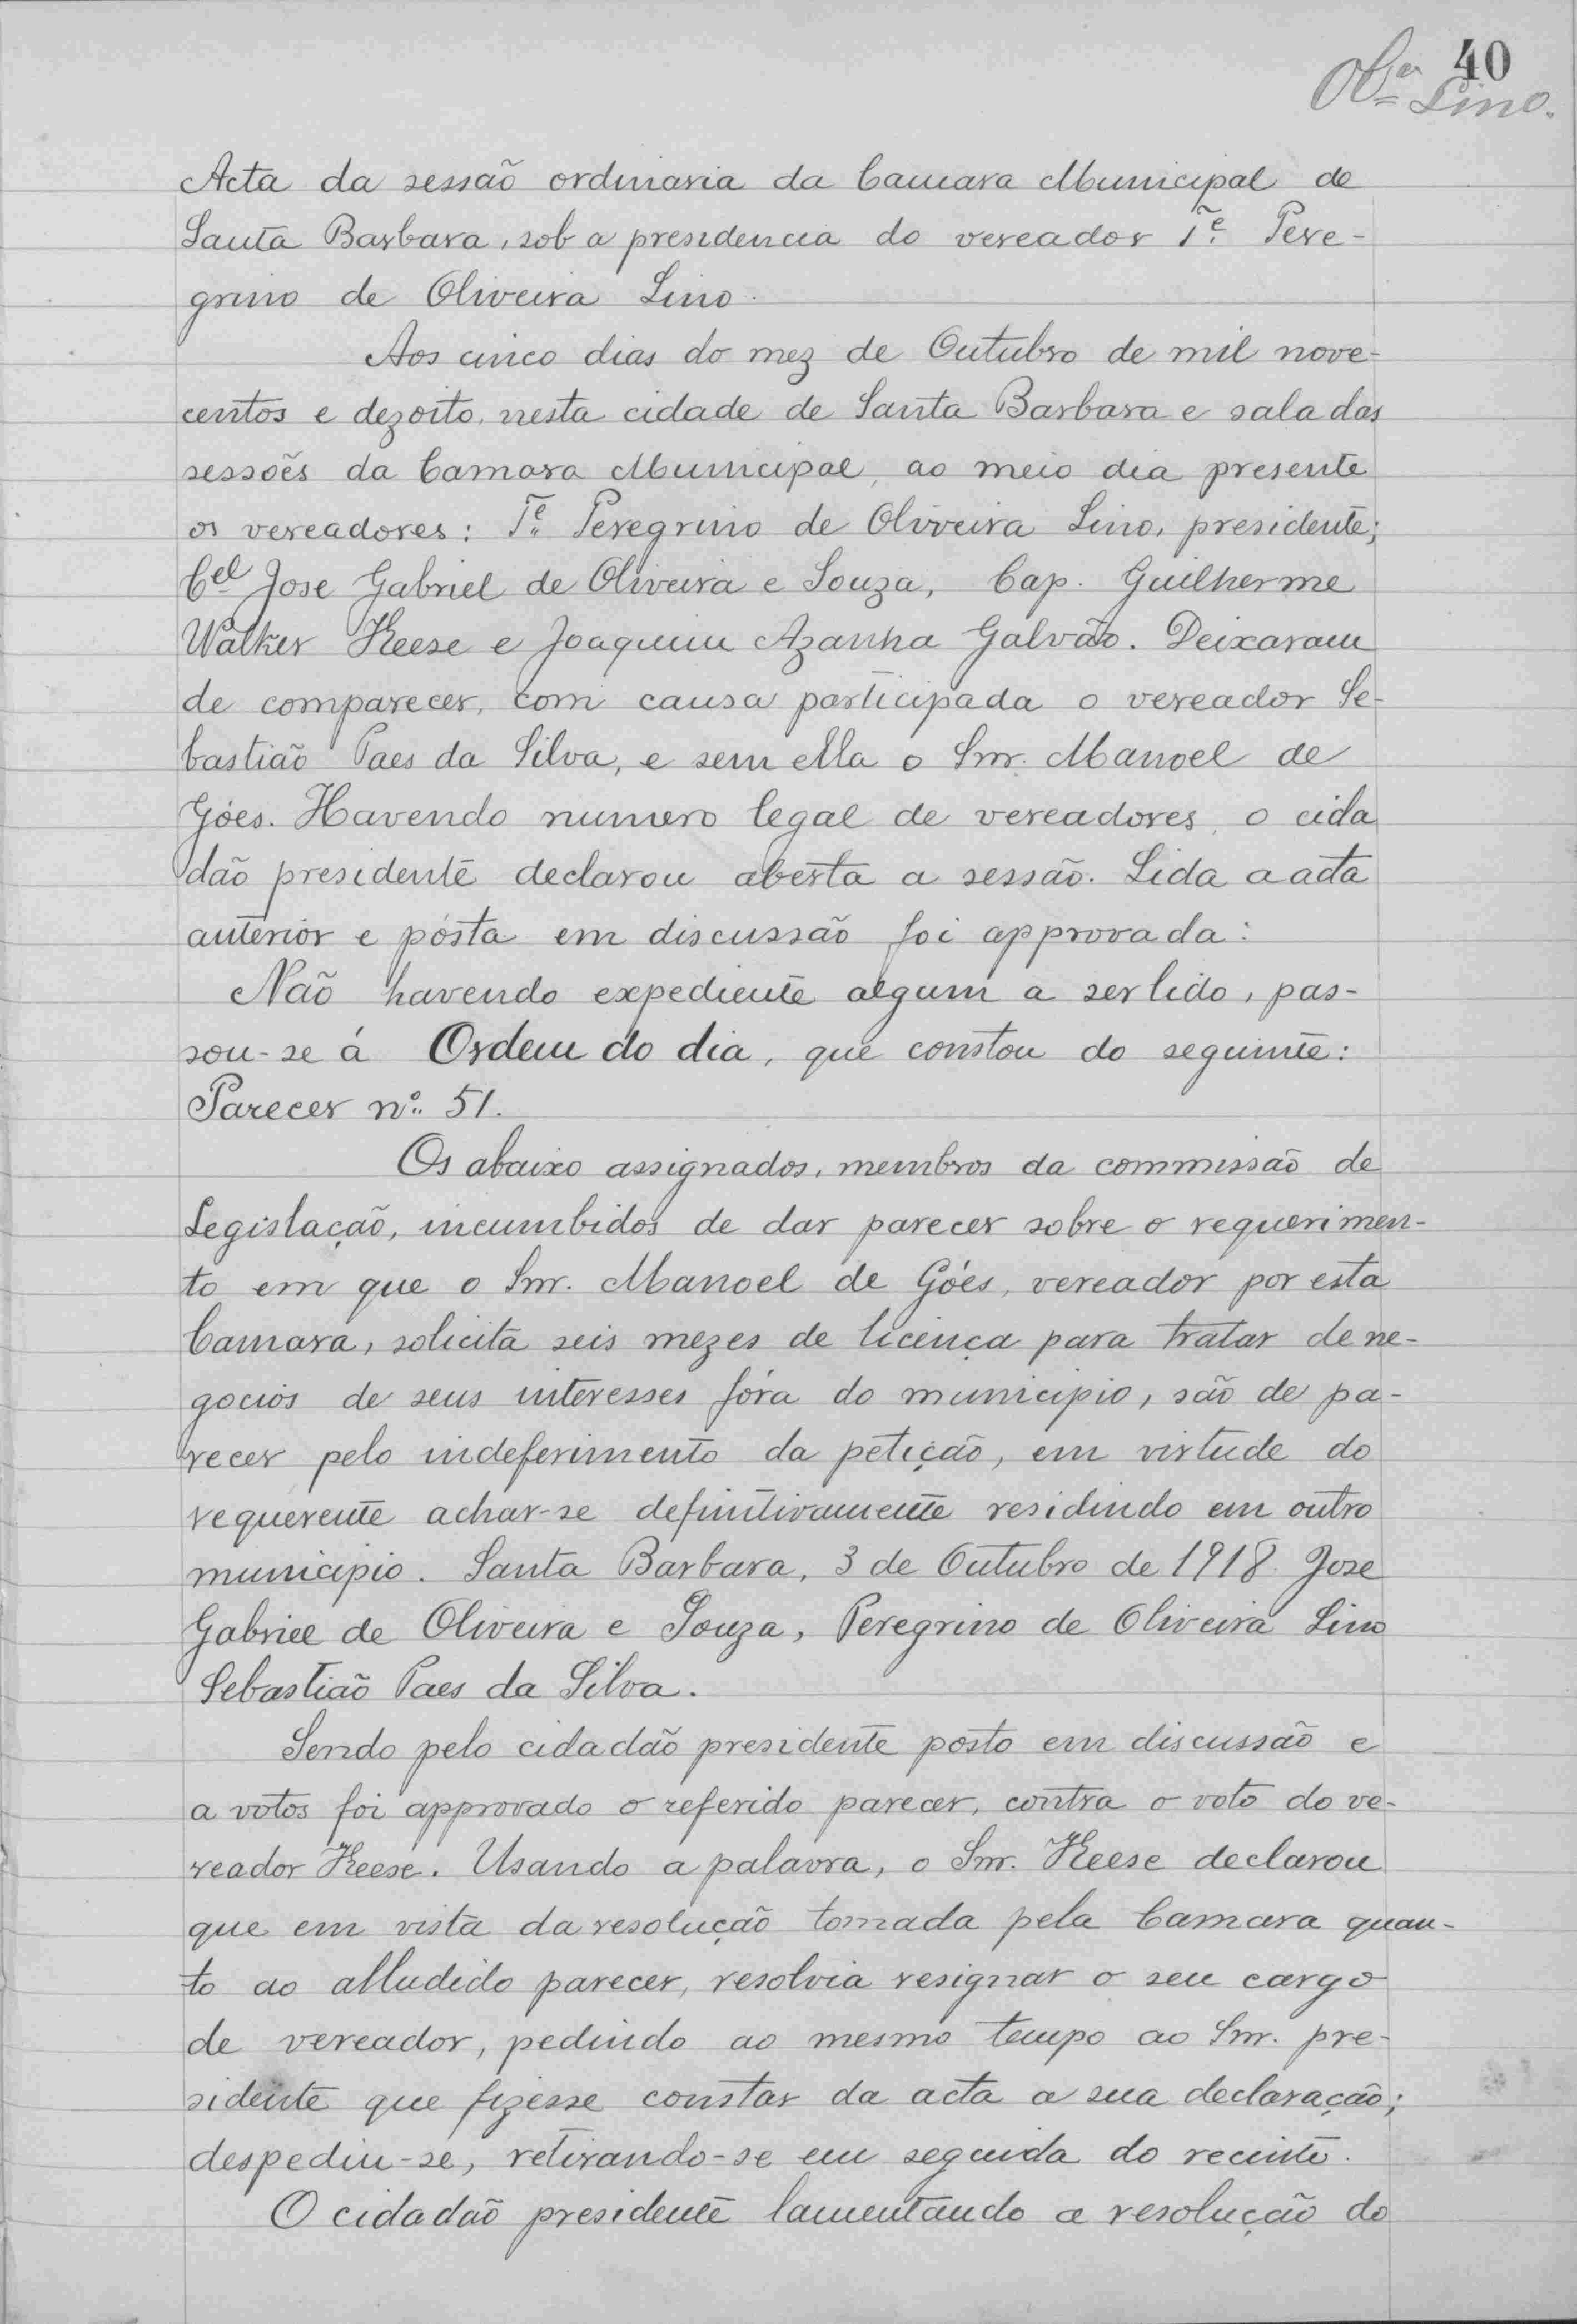 40
Olª Lino.
Acta da sessão ordinaria da Camara Municipal de
Santa Barbara, sob a presidencia do vereador Te. Pere-
grino de Oliveira Lino.
Aos cinco dias do mez de Outubro de mil nove-
centos e dezoito, nesta cidade de Santa Barbara e sala das
sessões da Camara Municipal, ao meio dia presente
os vereadores: Te. Peregrino de Oliveira Lino, presidente;
Cel Jose Gabriel de Oliveira e Souza, Cap. Guilherme
Walker Keese e Joaquim Azanha Galvão. Deixaram
de comparecer, com causa participada o vereador Se-
bastião Paes da Silva, e sem ella o Snr. Manoel de
Góes. Havendo numero legal de vereadores, o cida
dão presidente declarou aberta a sessão. Lida a acta
anterior e pósta em discussão foi approvada:
Não havendo expediente algum a ser lido, pas-
sou-se á Ordem do dia, que constou do seguinte:
Parecer nº 51.
Os abaixo assignados, membros da commissão de
Legislação, incumbidos de dar parecer sobre o requerimen-
to em que o Snr. Manoel de Góes, vereador por esta
Camara, solicita seis mezes de licença para tratar de ne-
gocios de seus interesses fóra do municipio, são de pa-
recer pelo indeferimento da petição, em virtude do
requerente achar-se definitivamente residindo em outro
municipio. Santa Barbara, 3 de Outubro de 1918. Jose
Gabriel de Oliveira e Souza, Peregrino de Oliveira Lino
Sebastião Paes da Silva.
Sendo pelo cidadão presidente posto em discussão e
a votos foi approvado o referido parecer, contra o voto do ve-
reador Keese. Usando a palavra, o Snr. Keese declarou
que em vista da resolução tomada pela Camara quan-
to ao alludido parecer, resolvia resignar o seu cargo
de vereador, pedindo ao mesmo tempo ao Snr. pre-
sidente que fizesse constar da acta a sua declaração;
despediu-se, retirando-se em seguida do recinto.
O cidadão presidente lamentando a resolução do